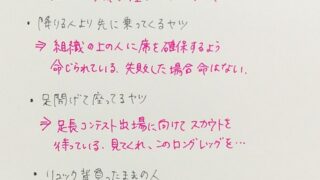 ・降りる人より先に乗ってくるヤツ
⇒ 組織の上の人に席を確保するよう
命じられている。失敗した場合命はない。
・足開げて座ってるヤツ
⇒ 足長コンテスト出場に向けてスカウトを
待っている。見てくれ、このロングレッグを…
・リュック背負ったままの人